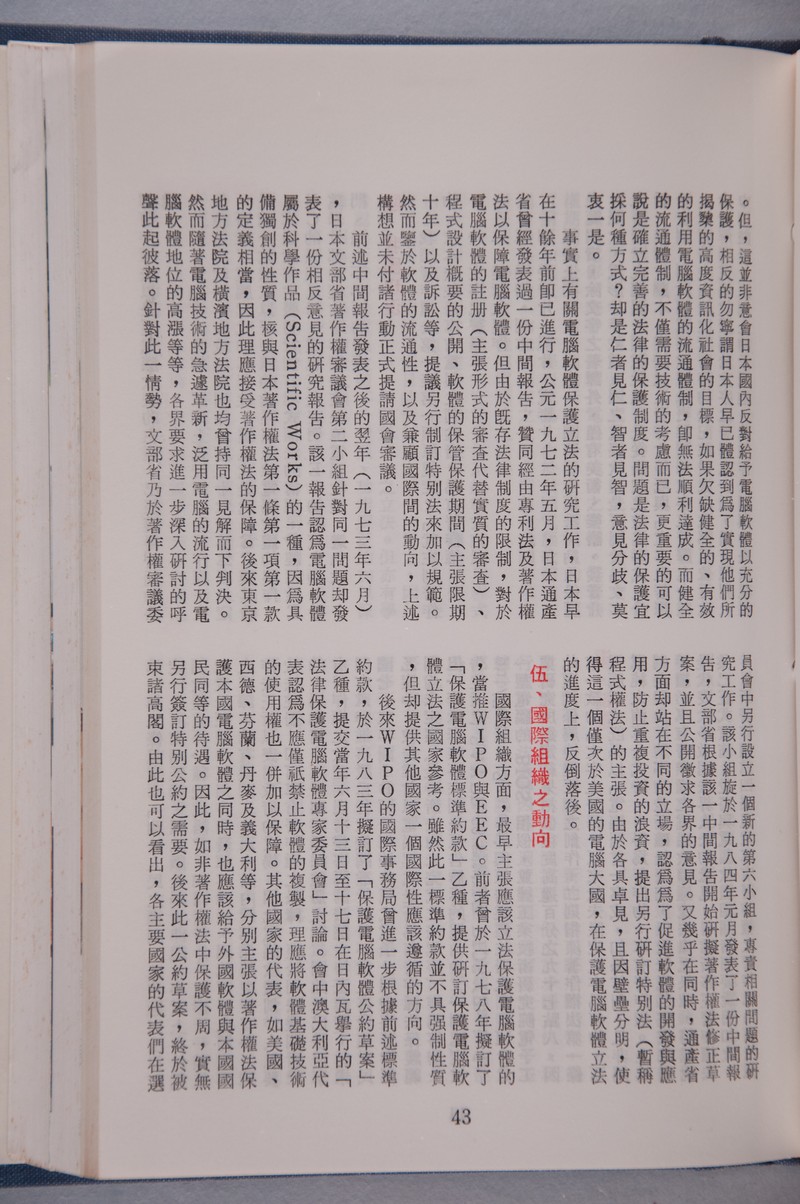 。但，這並非意會日本國內反對給予電腦軟體以充分的
保護，相反的勿寧謂日本人早已體認到爲了實現他們所
揭櫫的高度資訊化社會的目標，如果欠缺健全的、有效
的利用電腦軟體的流通體制，卽無法順利達成。而健全
的流通體制，不僅需要技術的考慮而已，更重要的可以
說是確立完善的法律的保護制度。問題是法律的保護宜
採何種方式？却是仁者見仁、智者見智，意見分歧、莫
衷一是。
事實上有關電腦軟體保護立法的研究工作，日本早
在十餘年前卽已進行，公元一九七二年五月，日本通產
省曾經發表過一份中間報告，贊同經由專利法及著作權
法以保障電腦軟體。但由於旣存法律制度的限制，對於
電腦軟體的註册（主張形式的審查代替實質的審查）、
程式設計概要的公開、軟體的保管保護期間（主張限期
十年）以及訴訟等，提議另行制訂特別法來加以規範。
然而鑒於軟體的流通性，以及兼顧國際間的動向，上述
構想並未付諸行動正式提請國會審議。
前述中間報告發表之後的翌年（一九七三年六月）
，日本文部省著作權審議會第二小組針對同一問題却發
表了一份相反意見的研究報告。該一報告認爲電腦軟體
屬於科學作品（Scientific Works）的一種，因爲具
備獨創的性質，核與日本著作權法第一條第一項第一款
的定義相當，因此理應接受著作權法的保障。後來東京
地方法院及橫濱地方法院也均曾持同一見解而下判決。
然而隨著電腦技術的急遽革新，泛用電腦的流行以及電
腦軟體地位的高漲等等，各界要求進一步深入研討的呼
聲此起彼落。針對此一情勢，文部省乃於著作權審議委
員會中另行設立一個新的第六小組，專責相關問題的研
究工作。該小組旋於一九八四年元月發表了一份中間報
告，文部省根據該一中間報告開始研擬著作權法修正草
案，並且公開徵求各界的意見。又幾乎在同時，通產省
方面却站在不同的立場，認爲爲了促進軟體的開發與應
用，防止重複投資的浪資，提出另行研訂特別法（暫稱
程式權法）的主張。由於各具卓見，且因壁壘分明，使
得這一個僅次於美國的電腦大國，在保護電腦軟體立法
的進度上，反倒落後。
伍、國際組織之動向
國際組織方面，最早主張應該立法保護電腦軟體的
，當推ＷＩＰＯ與ＥＥＣ。前者曾於一九七八年擬訂了
「保護電腦軟體標準約款」乙種，提供研訂保護電腦軟
體立法之國家參考。雖然此一標準約款並不具强制性質
，但却提供其他國家一個國際性應該遵循的方向。
後來ＷＩＰＯ的國際事務局曾進一步根據前述標準
約款，於一九八三年擬訂了「保護電腦軟體公約草案」
乙種，提交當年六月十三日至十七日在日內瓦擧行的「
法律保護電腦軟體專家委員會」討論。會中澳大利亞代
表認爲不應僅祇禁止軟體的複製，理應將軟體基礎技術
的使用權也一併加以保障。其他國家的代表，如美國、
西德、芬蘭、丹麥及義大利等，分別主張以著作權法保
護本國電腦軟體之同時，也應該給予外國軟體與本國國
民同等的待遇。因此，如非著作權法中保護不周，實無
另行簽訂特別公約之需要。後來此一公約草案，終於被
束諸高閣。由此也可以看出，各主要國家的代表們在選
43